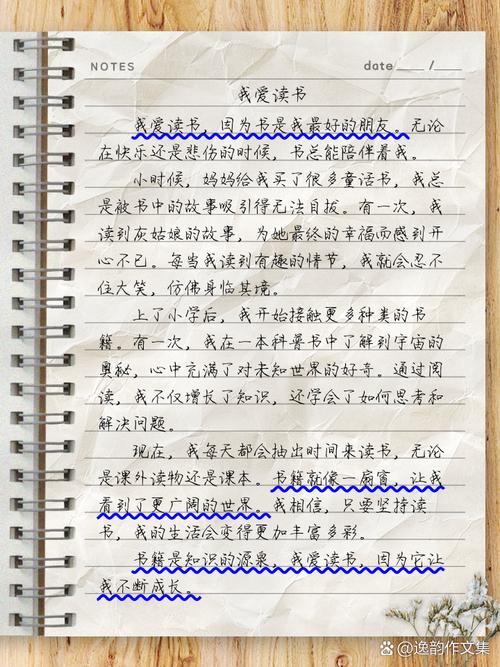 NOTES
date ____ / ____
我爱读书
我爱读书，因为书是我最好的朋友。无论
在快乐还是悲伤的时候，书总能陪伴着我。
小时候，妈妈给我买了很多童话书，我总
是被书中的故事吸引得无法自拔。有一次，我
读到灰姑娘的故事，为她最终的幸福而感到开
心不已。每当我读到有趣的情节，我就会忍不
住大笑，仿佛身临其境。
上了小学后，我开始接触更多种类的书
籍。有一次，我在一本科普书中了解到宇宙的
奥秘，心中充满了对未知世界的好奇。通过阅
读，我不仅增长了知识，还学会了如何思考和
解决问题。
现在，我每天都会抽出时间来读书，无论
是课外读物还是课本。书籍就像一扇窗，让我
看到了更广阔的世界。我相信，只要坚持读
书，我的生活会变得更加丰富多彩。
书籍是知识的源泉，我爱读书，因为它让
我不断成长。
@逸韵作文集